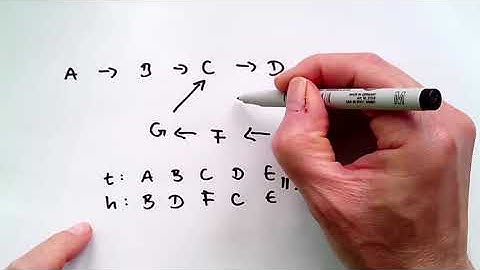 A → B → C → D
G ← F ←
t: A B C D E
h: B D F C E
M